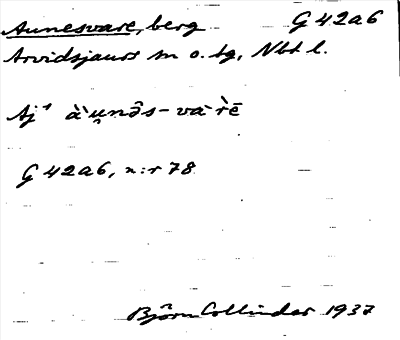 Aunesvare, berg G 42a6
Arvidsjaurs sn o. tg, Nbt l.
Aj¹ à·u̯nə̑s-va·r̀ē
G 42a6, n:r 78
Björn Collinder 1937